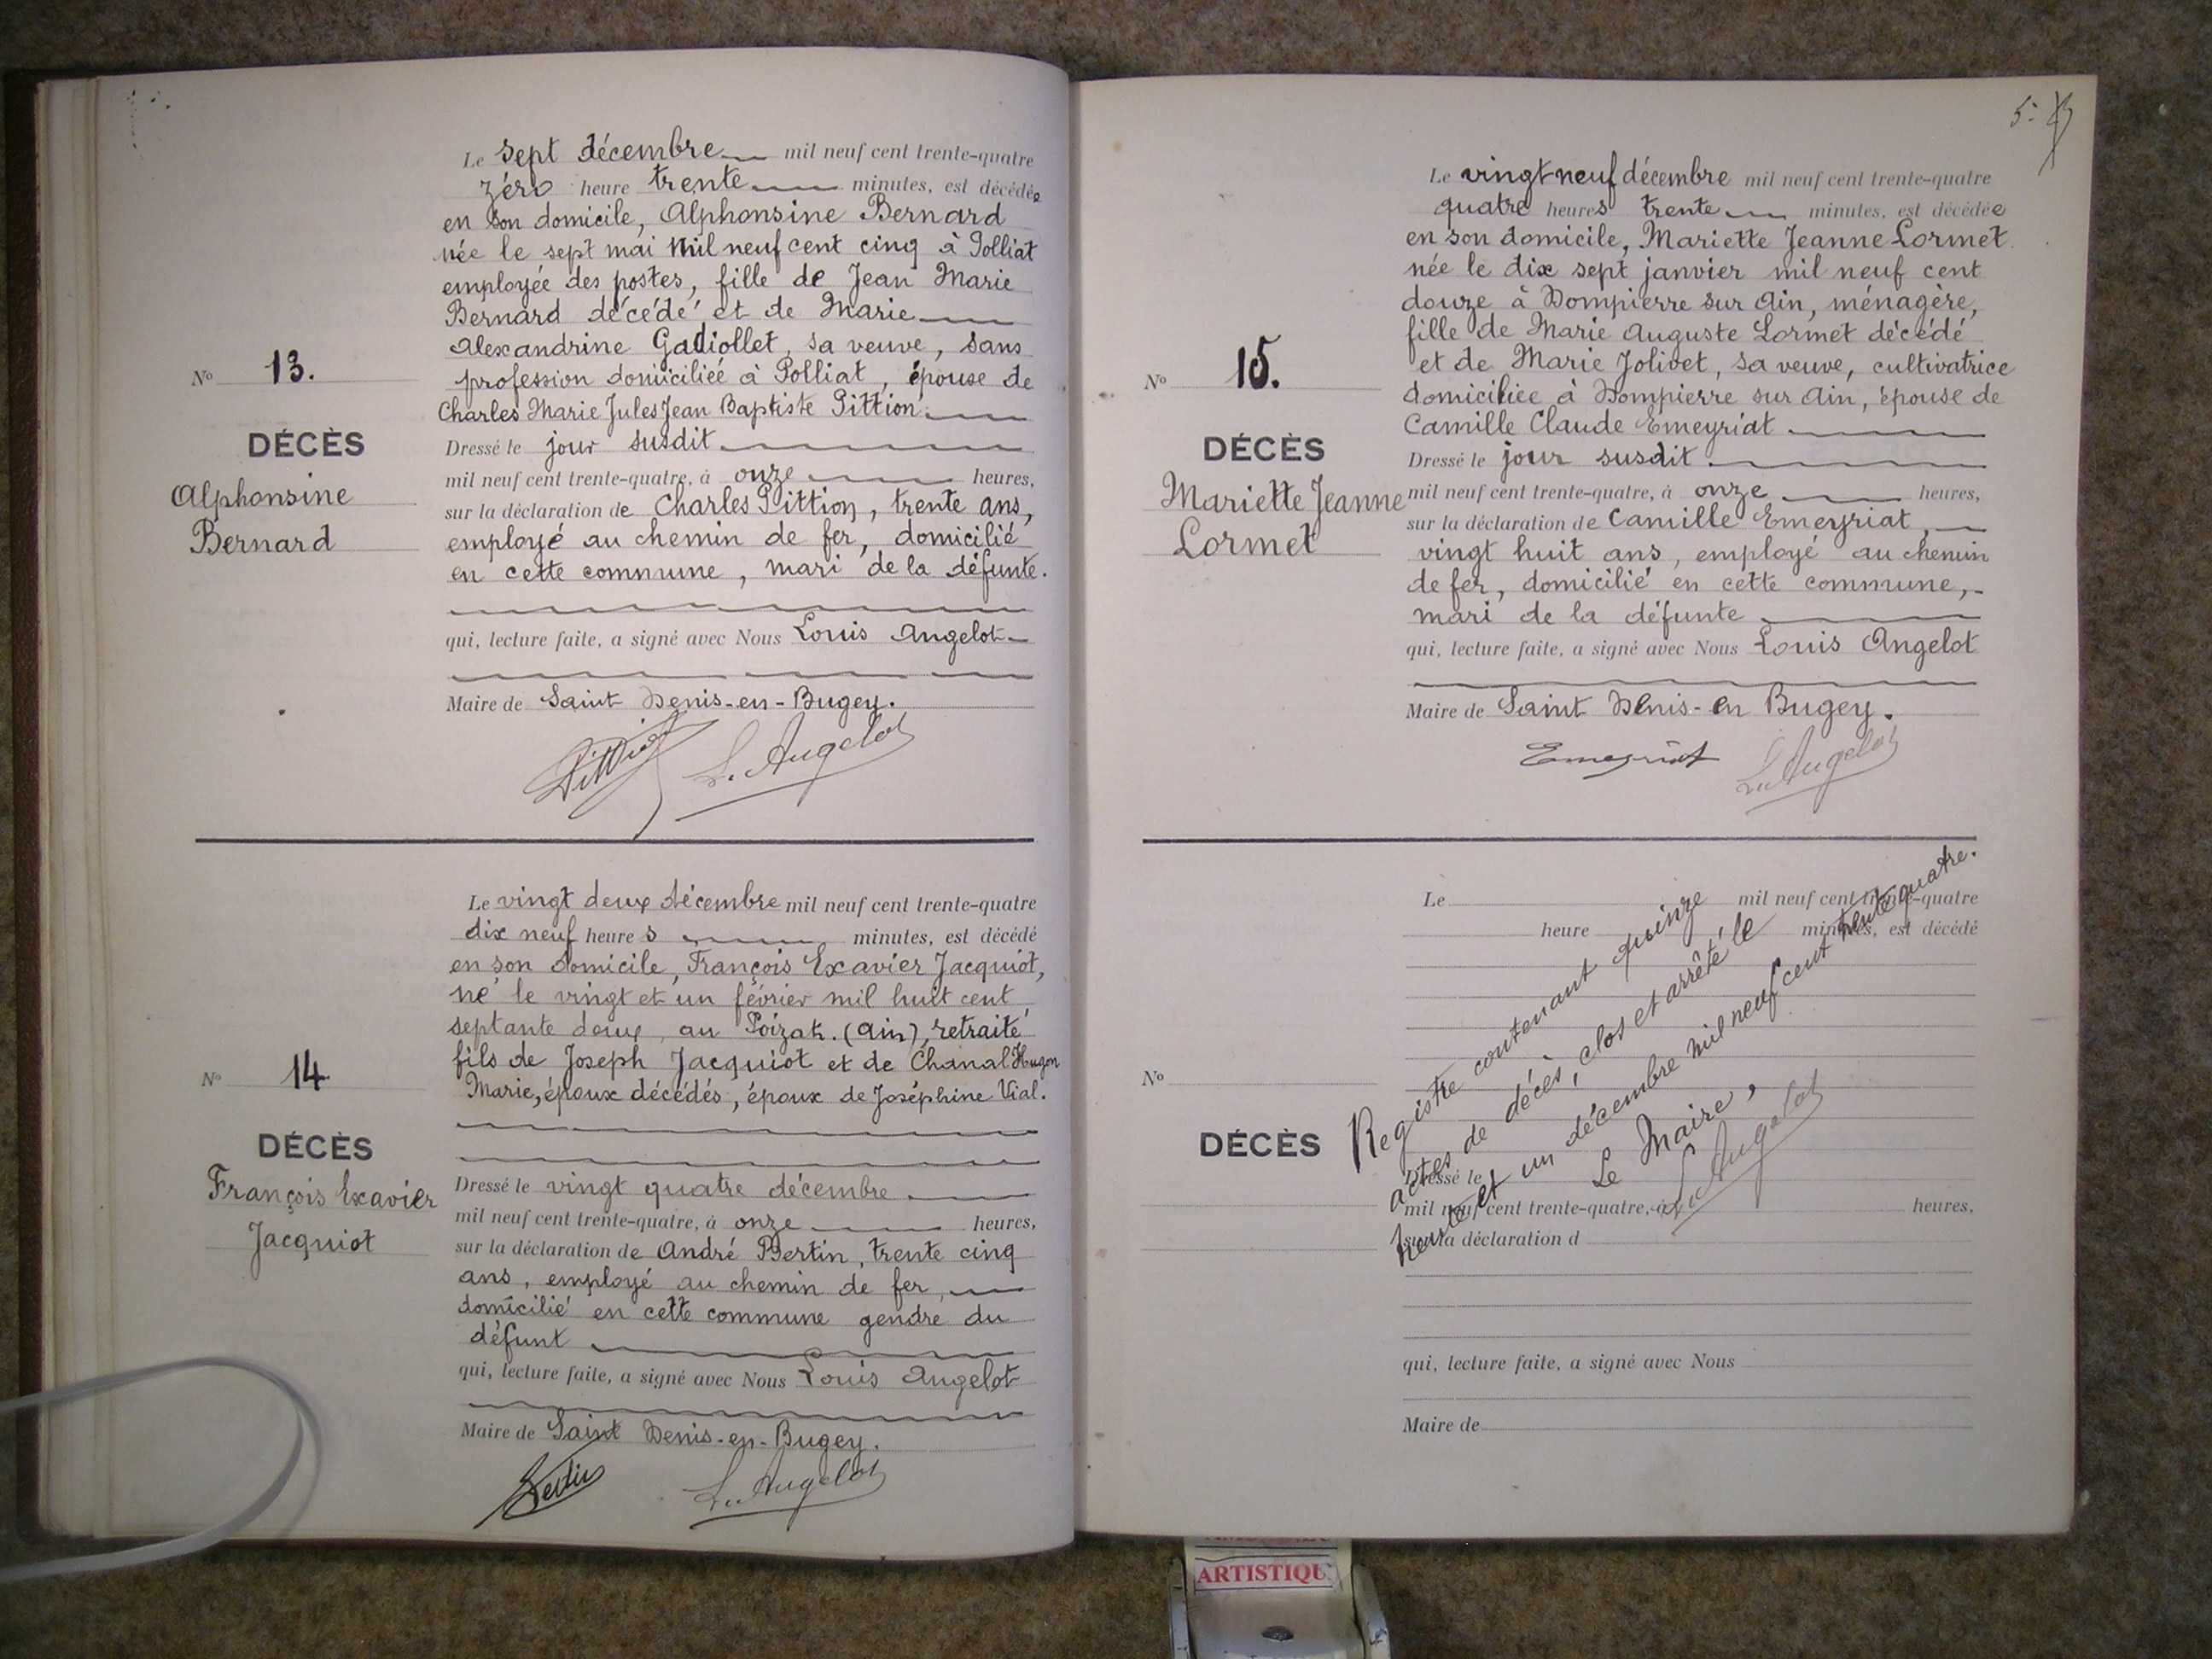 Le sept décembre mil neuf cent trente-quatre
zéro heure trente minutes, est décédée
en son domicile, Alphonsine Bernard
née le sept mai mil neuf cent cinq à Polliat
employée des postes, fille de Jean Marie
Bernard décédé et de Marie
Alexandrine Gadiollet, sa veuve, sans
profession domiciliée à Polliat, épouse de
Charles Marie Jules Jean Baptiste Pittion.
No 13.
DÉCÈS
Alphonsine
Bernard
Dressé le jour susdit
mil neuf cent trente-quatre, à onze heures,
sur la déclaration de Charles Pittion, trente ans,
employé au chemin de fer, domicilié
en cette commune, mari de la défunte.
qui, lecture faite, a signé avec Nous Louis Angelot
Maire de Saint Denis-en-Bugey.
Pittion L. Angelot
Le vingt deux décembre mil neuf cent trente-quatre
dix neuf heures minutes, est décédé
en son domicile, François Exavier Jacquiot,
né le vingt et un février mil huit cent
septante deux, au Poizat. (Ain), retraité
fils de Joseph Jacquiot et de Chanal Hugon
Marie, époux décédés, époux de Joséphine Vial.
No 14
DÉCÈS
François Exavier
Jacquiot
Dressé le vingt quatre décembre
mil neuf cent trente-quatre, à onze heures,
sur la déclaration de André Bertin, trente cinq
ans, employé au chemin de fer,
domicilié en cette commune gendre du
défunt
qui, lecture faite, a signé avec Nous Louis Angelot
Maire de Saint Denis-en-Bugey.
Bertin L. Angelot
5
Le vingt neuf décembre mil neuf cent trente-quatre
quatre heures trente minutes, est décédée
en son domicile, Mariette Jeanne Lormet
née le dix sept janvier mil neuf cent
douze à Dompierre sur Ain, ménagère,
fille de Marie Auguste Lormet décédé
et de Marie Jolivet, sa veuve, cultivatrice
domiciliée à Dompierre sur Ain, épouse de
Camille Claude Emeyriat
No 15.
DÉCÈS
Mariette Jeanne
Lormet
Dressé le jour susdit.
mil neuf cent trente-quatre, à onze heures,
sur la déclaration de Camille Emeyriat,
vingt huit ans, employé au chemin
de fer, domicilié en cette commune,
mari de la défunte
qui, lecture faite, a signé avec Nous Louis Angelot
Maire de Saint Denis-en Bugey.
Emeyriat L. Angelot
Le mil neuf cent trente-quatre
heure minutes, est décédé
No
DÉCÈS
Registre contenant quinze
actes de décès, clos et arrêté le
trente et un décembre mil neuf cent trente quatre.
Le Maire,
L. Angelot
Dressé le
mil neuf cent trente-quatre, à heures,
sur la déclaration d
qui, lecture faite, a signé avec Nous
Maire de
ARTISTIQU